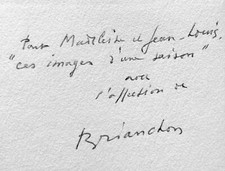 Pour Madeleine et Jean-Louis,
"ces images d'une saison"
avec
l'affection de
Brianchon